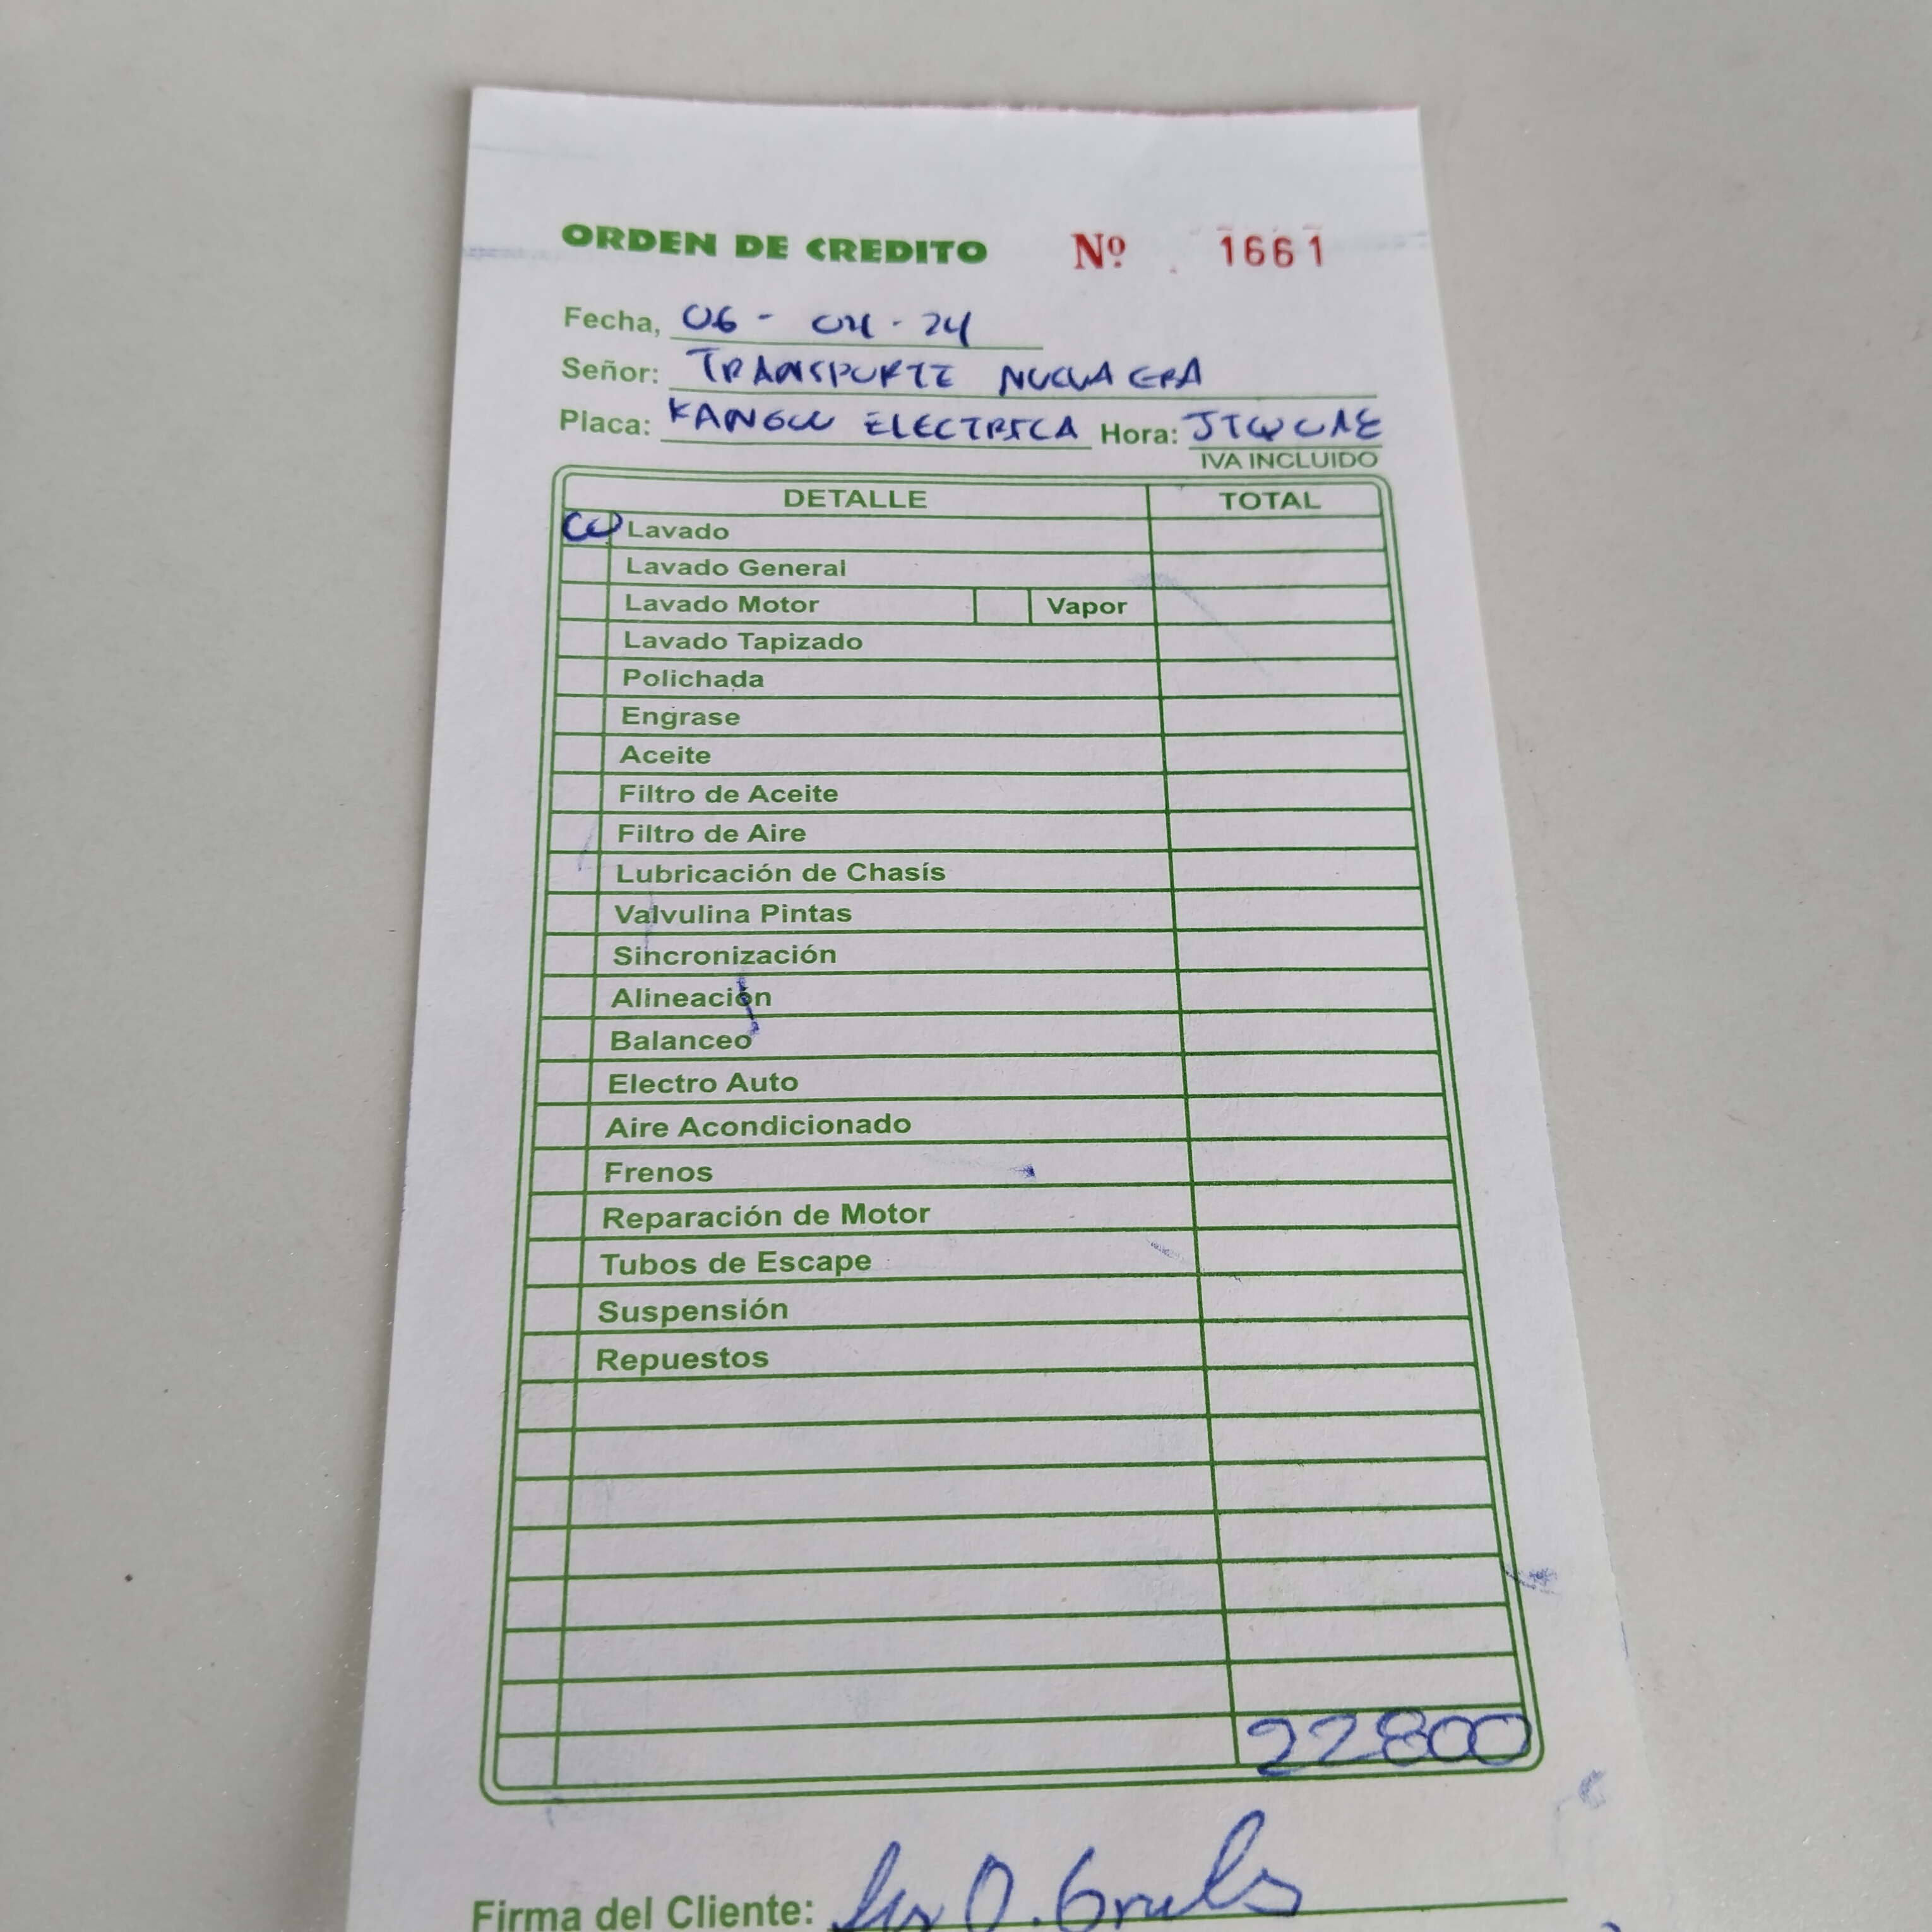 ORDEN DE CREDITO Nº 1661
Fecha, 06 - 04 - 24
Señor: TRANSPORTE NUEVA ERA
Placa: KANGOO ELECTRICA Hora:
IVA INCLUIDO
DETALLE TOTAL
Lavado
Lavado General
Lavado Motor Vapor
Lavado Tapizado
Polichada
Engrase
Aceite
Filtro de Aceite
Filtro de Aire
Lubricación de Chasís
Valvulina Pintas
Sincronización
Alineación
Balanceo
Electro Auto
Aire Acondicionado
Frenos
Reparación de Motor
Tubos de Escape
Suspensión
Repuestos
22800
Firma del Cliente: